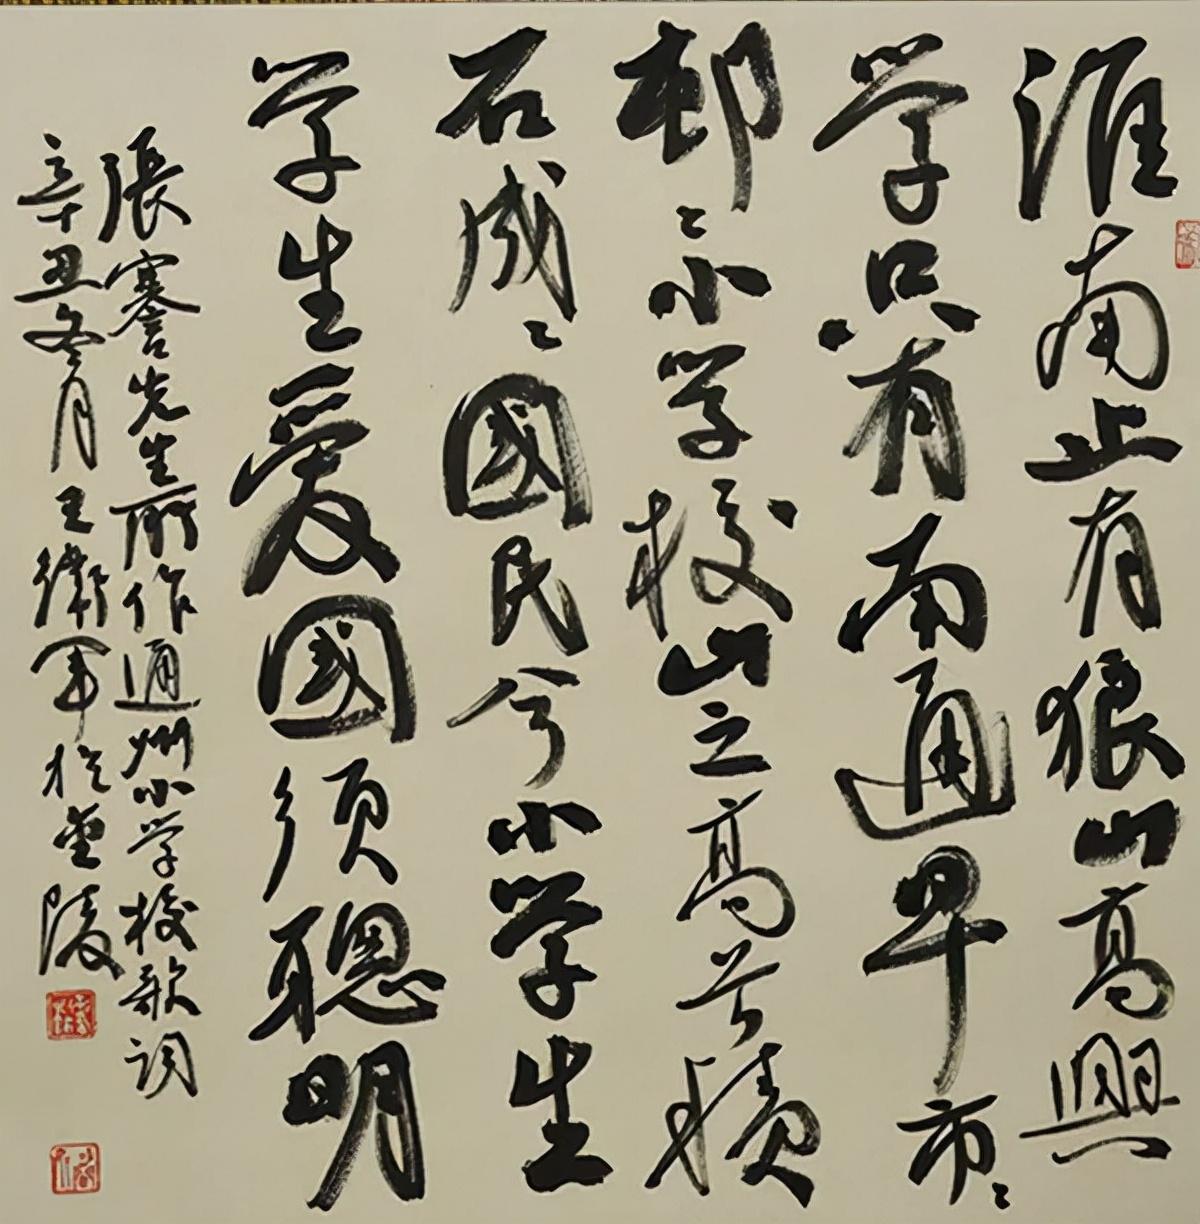 淮南止有狼山高興
学只有南通早市〻
邨〻小学校山之高兮積
石成〻國民兮小学生
学生愛國須聰明
張謇先生所作通州小学校歌詞
辛丑冬月王衛軍於金陵